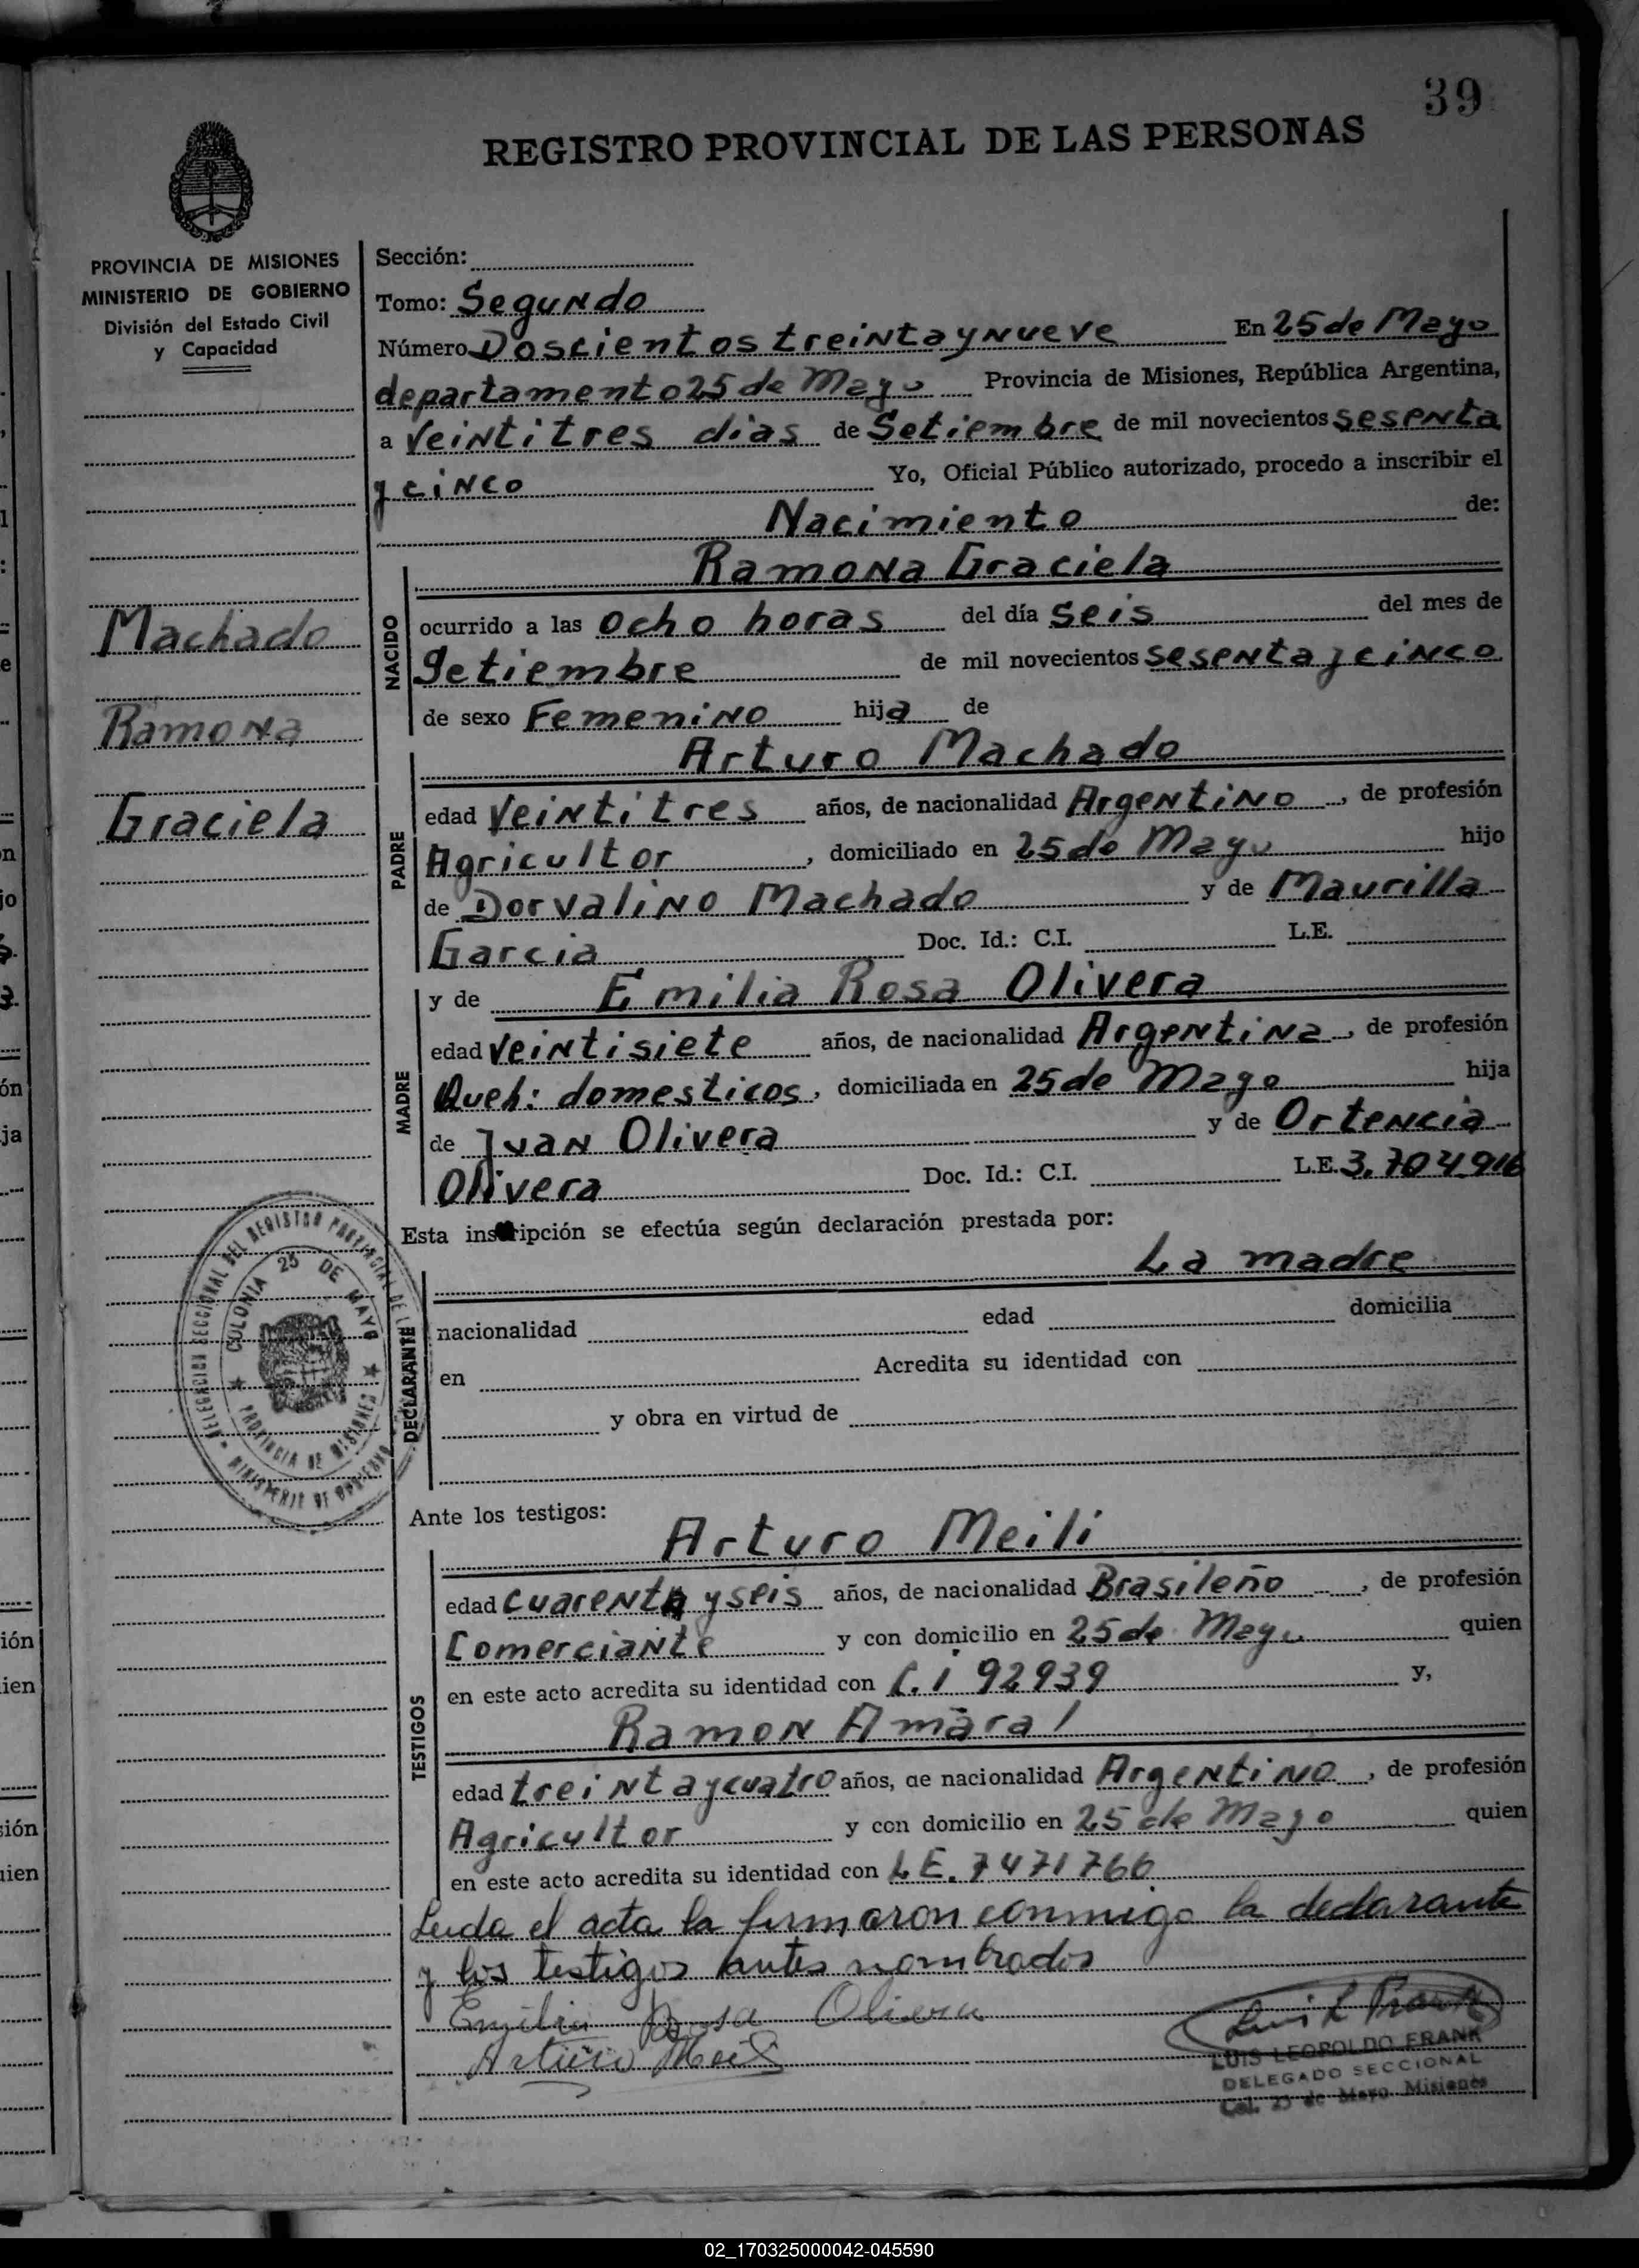 39
REGISTRO PROVINCIAL DE LAS PERSONAS
PROVINCIA DE MISIONES
MINISTERIO DE GOBIERNO
División del Estado Civil
y Capacidad
Sección:
Tomo: Segundo
Número Doscientos treinta y nueve En 25 de Mayo
departamento 25 de Mayo Provincia de Misiones, República Argentina,
a Veintitres dias de Setiembre de mil novecientos sesenta
y cinco Yo, Oficial Público autorizado, procedo a inscribir el
Nacimiento de:
Machado
Ramona
Graciela
NACIDO
Ramona Graciela
ocurrido a las ocho horas del día seis del mes de
Setiembre de mil novecientos sesenta y cinco
de sexo Femenino hija de
PADRE
Arturo Machado
edad Veintitres años, de nacionalidad Argentino, de profesión
Agricultor, domiciliado en 25 de Mayo hijo
de Dorvalino Machado y de Maurilla
Garcia Doc. Id.: C.I. L.E.
MADRE
y de Emilia Rosa Olivera
edad veintisiete años, de nacionalidad Argentina, de profesión
Queh: domesticos, domiciliada en 25 de Mayo hija
de Juan Olivera y de Ortencia
Olivera Doc. Id.: C.I. L.E. 3.704.916
Esta inscripción se efectúa según declaración prestada por:
DECLARANTE
La madre
nacionalidad edad domicilia
en Acredita su identidad con
y obra en virtud de
DELEGACION SECCIONAL DEL REGISTRO PROVINCIAL DE
MINISTERIO DE GOBIERNO
COLONIA 25 DE MAYO
PROVINCIA DE MISIONES
Ante los testigos:
TESTIGOS
Arturo Meili
edad cuarenta y seis años, de nacionalidad Brasileño, de profesión
Comerciante y con domicilio en 25 de Mayo quien
en este acto acredita su identidad con C.i 92939 y,
Ramon Amaral
edad treinta y cuatro años, de nacionalidad Argentino, de profesión
Agricultor y con domicilio en 25 de Mayo quien
en este acto acredita su identidad con L E. 7471766
Leida el acta la firmaron conmigo la declarante
y los testigos antes nombrados
Emilia Rosa Olivera
Arturo Meili
Luis L Frank
LUIS LEOPOLDO FRANK
DELEGADO SECCIONAL
Col. 25 de Mayo Misiones
02_170325000042-045590